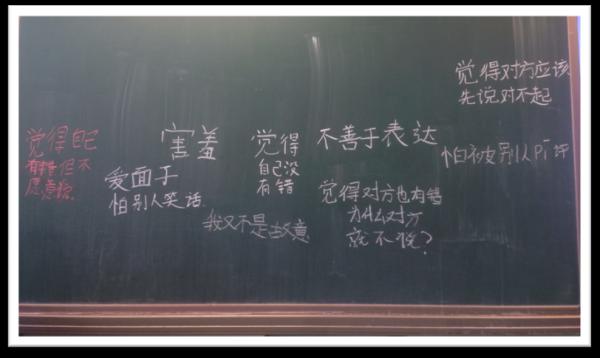 觉得自己
有错但不
愿意
害羞
爱面子
怕别人笑话
觉得
自己没
有错
我又不是故意
不善于表达
觉得对方也有错
为什么对方
就不说?
觉得对方应该
先说对不起
怕被别人pī评